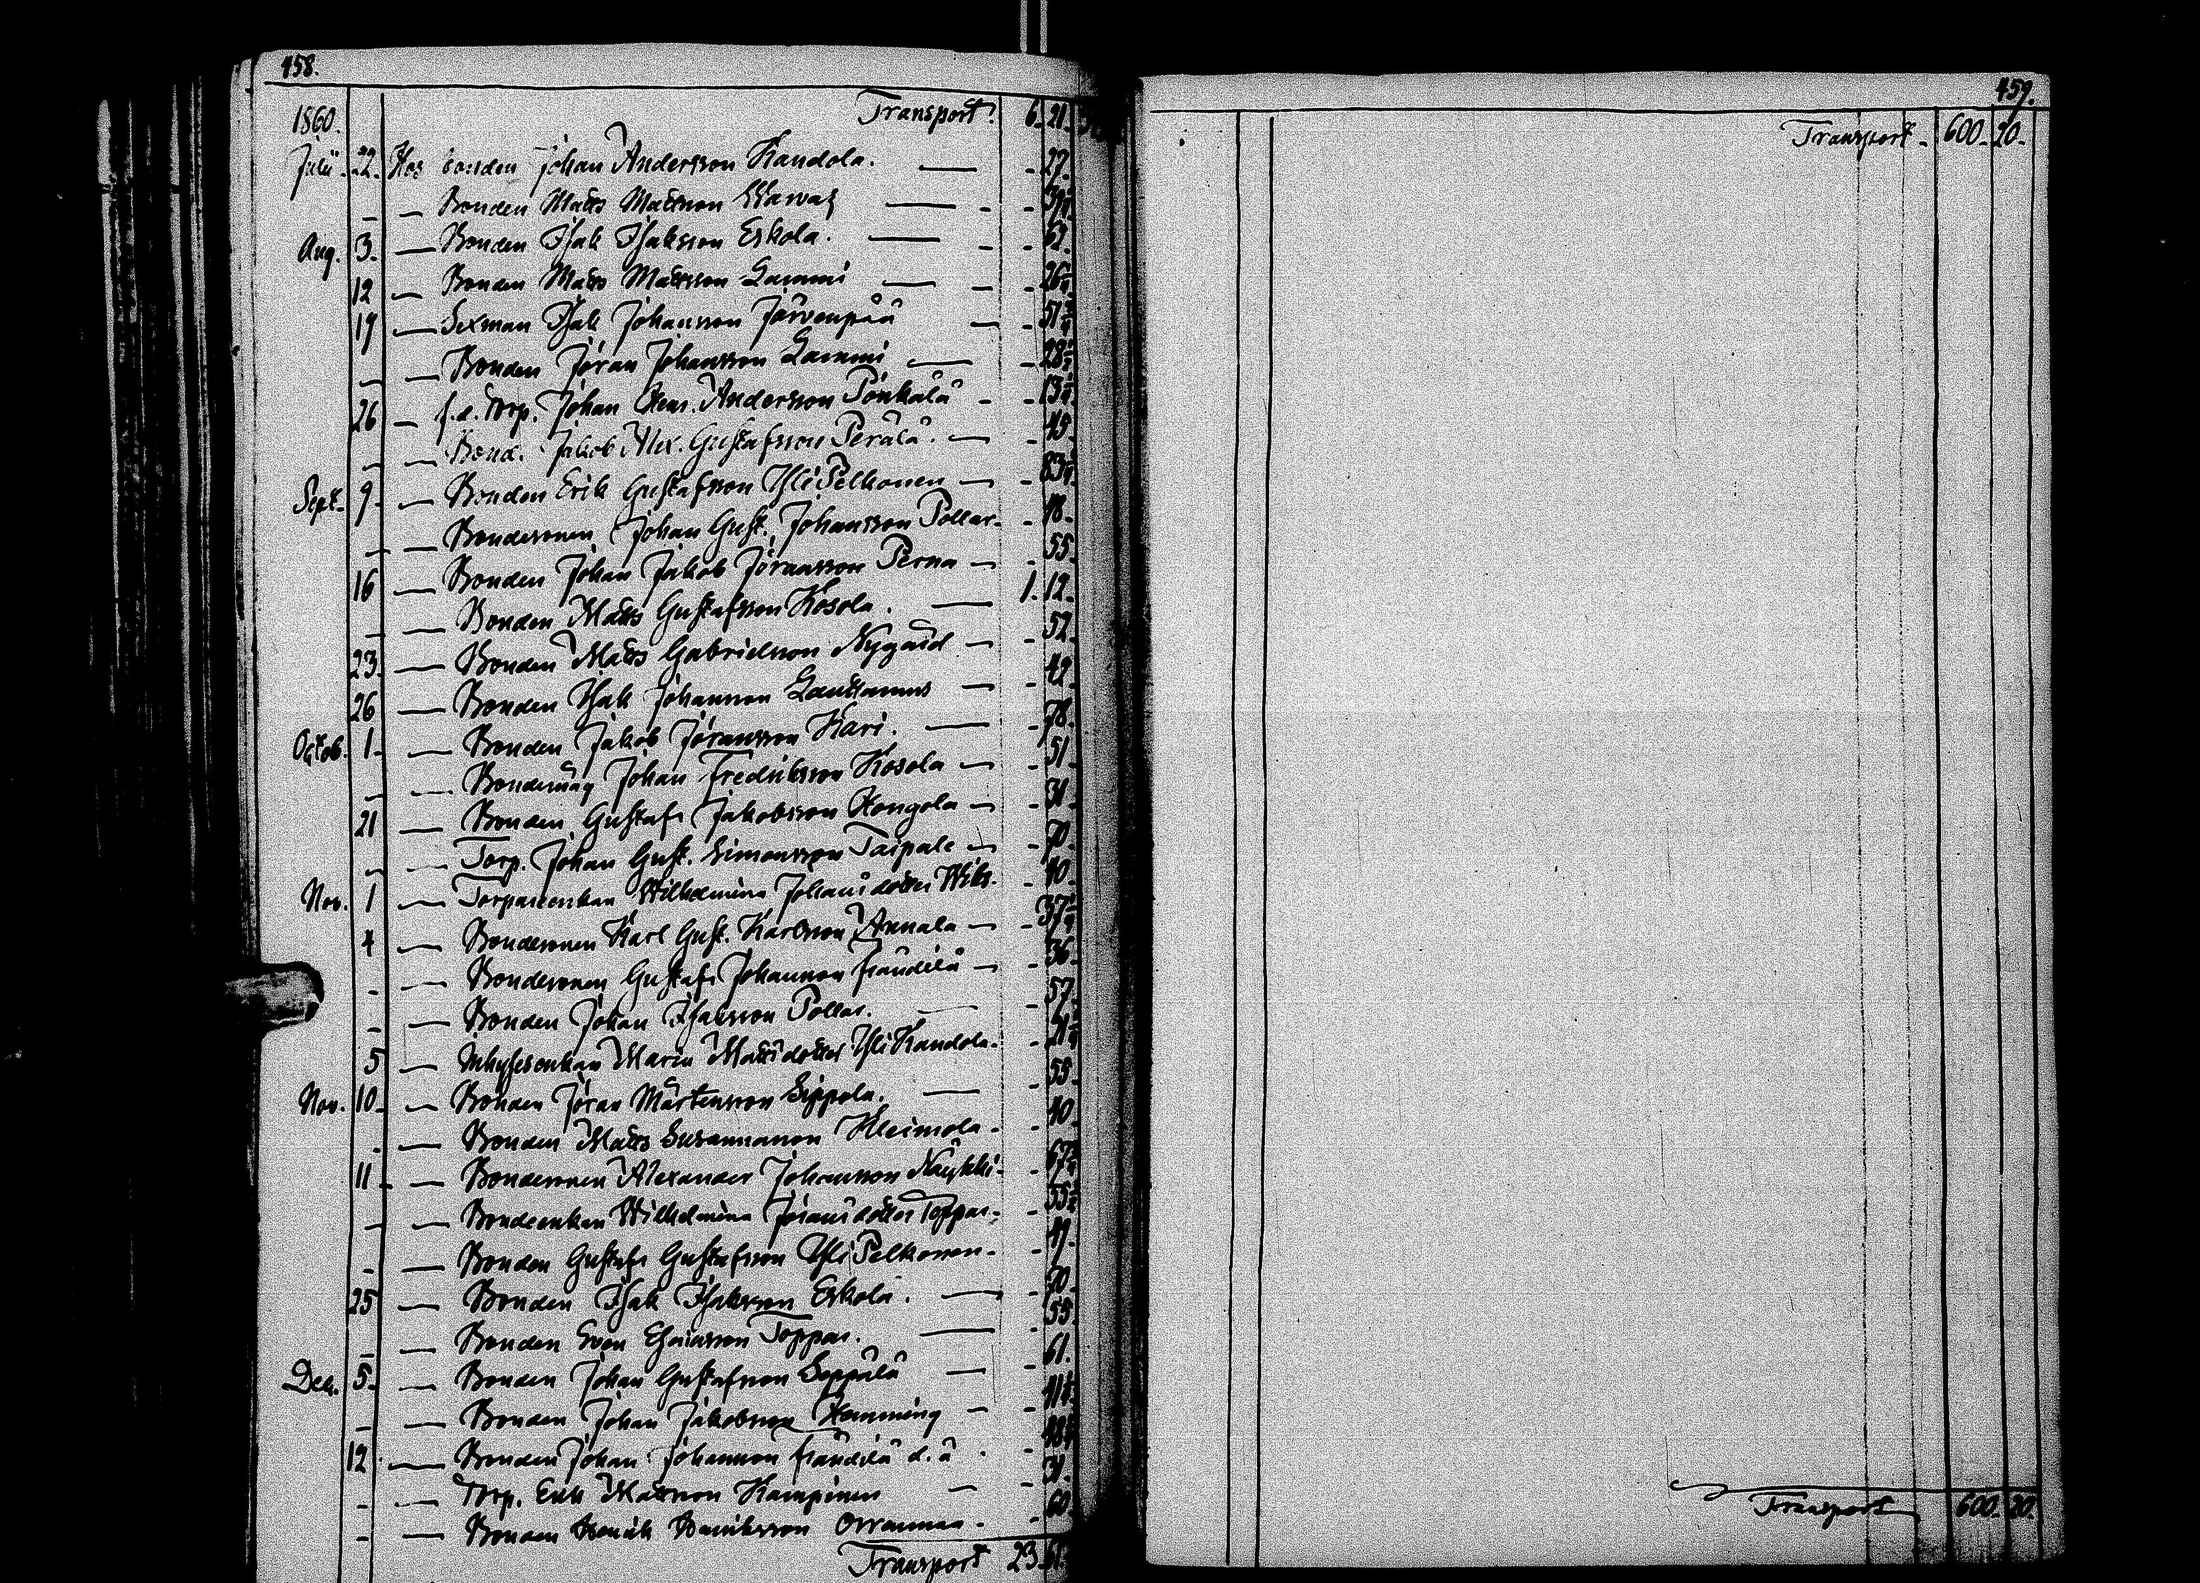 458.
1860. Transport. 6. 21.
Julii 22. Hos bonden Johan Andersson Kandola. — - 27.
- — Bonden Matts Mattsson Warvas — - 
Aug. 3. — Bonden Isak Isaksson Eskola. — - 62.
12 — Bonden Matts Mattsson Lammi — - 26
19 — Sexman Isak Johansson Järvenpää — - 51
- — Bonden Jöran Johansson Lammi — - 28
26 — f.d. Torp. Johan Andersson Pönkälä - - 13
- — Bond. Jakob Alex. Gustafsson Perälä. — - 45.
Sept. 9. — Bonden Erik Gustafsson Yli Pelkonen — - 83
- — Bondesonen Johan Gust. Johansson Pollar - - 18.
16 — Bonden Johan Jakob Jöransson Perna — - 55.
- — Bonden Matts Gustafsson Kosola. — 1. 12.
23. — Bonden Matts Gabrielsson Nygård — - 52.
26 — Bonden Isak Johansson Lanttamus — - 42.
Octob. 1. — Bonden Jakob Jöransson Kari. — - 78.
- — Bondemåg Johan Fredriksson Kosola — - 51.
21 — Bonden Gustaf Jakobsson Hongola — - 31.
- — Torp. Johan Gust. Simonsson Taipale — - 70.
Nov. 1 — Torpareenkan Wilhelmina Johansdotter - 40.
4 — Bondesonen Karl Gust. Karlsson Annala — - 37
- — Bondesonen Gustaf Johansson Frändilä — - 36.
- — Bonden Johan Isaksson Pollar. — - 57.
5 — Inhysesenkan Maria Mattsdotter Yli Kandola. - 21
Nov. 10. — Bonden Jöran Mårtensson Sippola. — - 55.
- — Bonden Matts Susannasson Heimola - - 40.
11 — Bondesonen Alexander Johansson Näykki - - 67
- — Bondeenkan Wilhelmina Jöransdotter Toppar - - 55
- — Bonden Gustaf Gustafsson Yli Pelkonen - - 49.
25 — Bonden Isak Isaksson Eskola. — - 70.
- — Bonden Sven Esaiasson Toppar. — - 55.
Dec. 5. — Bonden Johan Gustafsson Seppälä — - 61.
- — Bonden Johan Jakobsson Hemming — - 41
12. — Bonden Johan Johansson Frändilä d.ä. - 48
- — Torp. Erik Mattsson Kampinen — - 31.
- — Bonden Henrik Henriksson Orrenmaa - - 60.
Transport 23. 61.
459.
Transport - 600. 20.
Transport 600. 20.